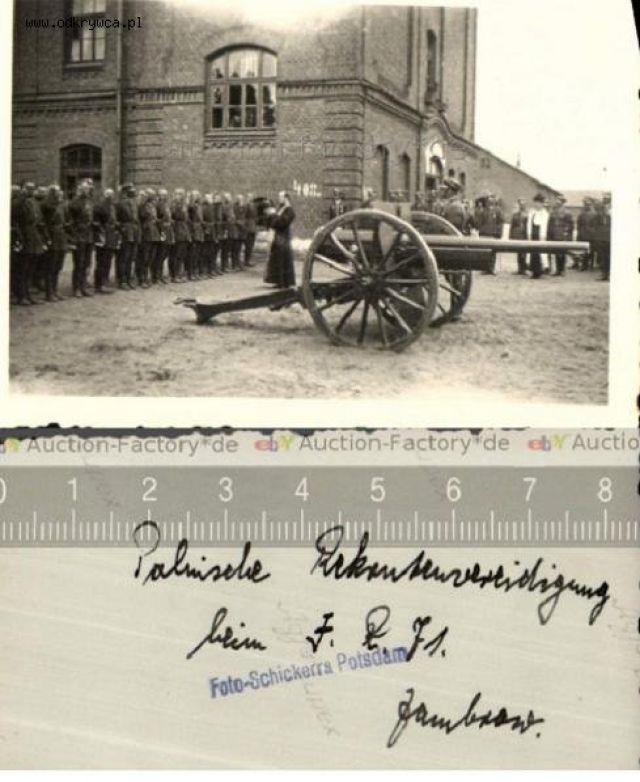 www.odkrywca.pl
408.
Auction-Factory*de ebY Auction-Factory*de ebY Auctio
0 1 2 3 4 5 6 7 8
Polnische Rekrutenvereidigung
beim J. R. 71.
Foto-Schickerra Potsdam
Zambrow.